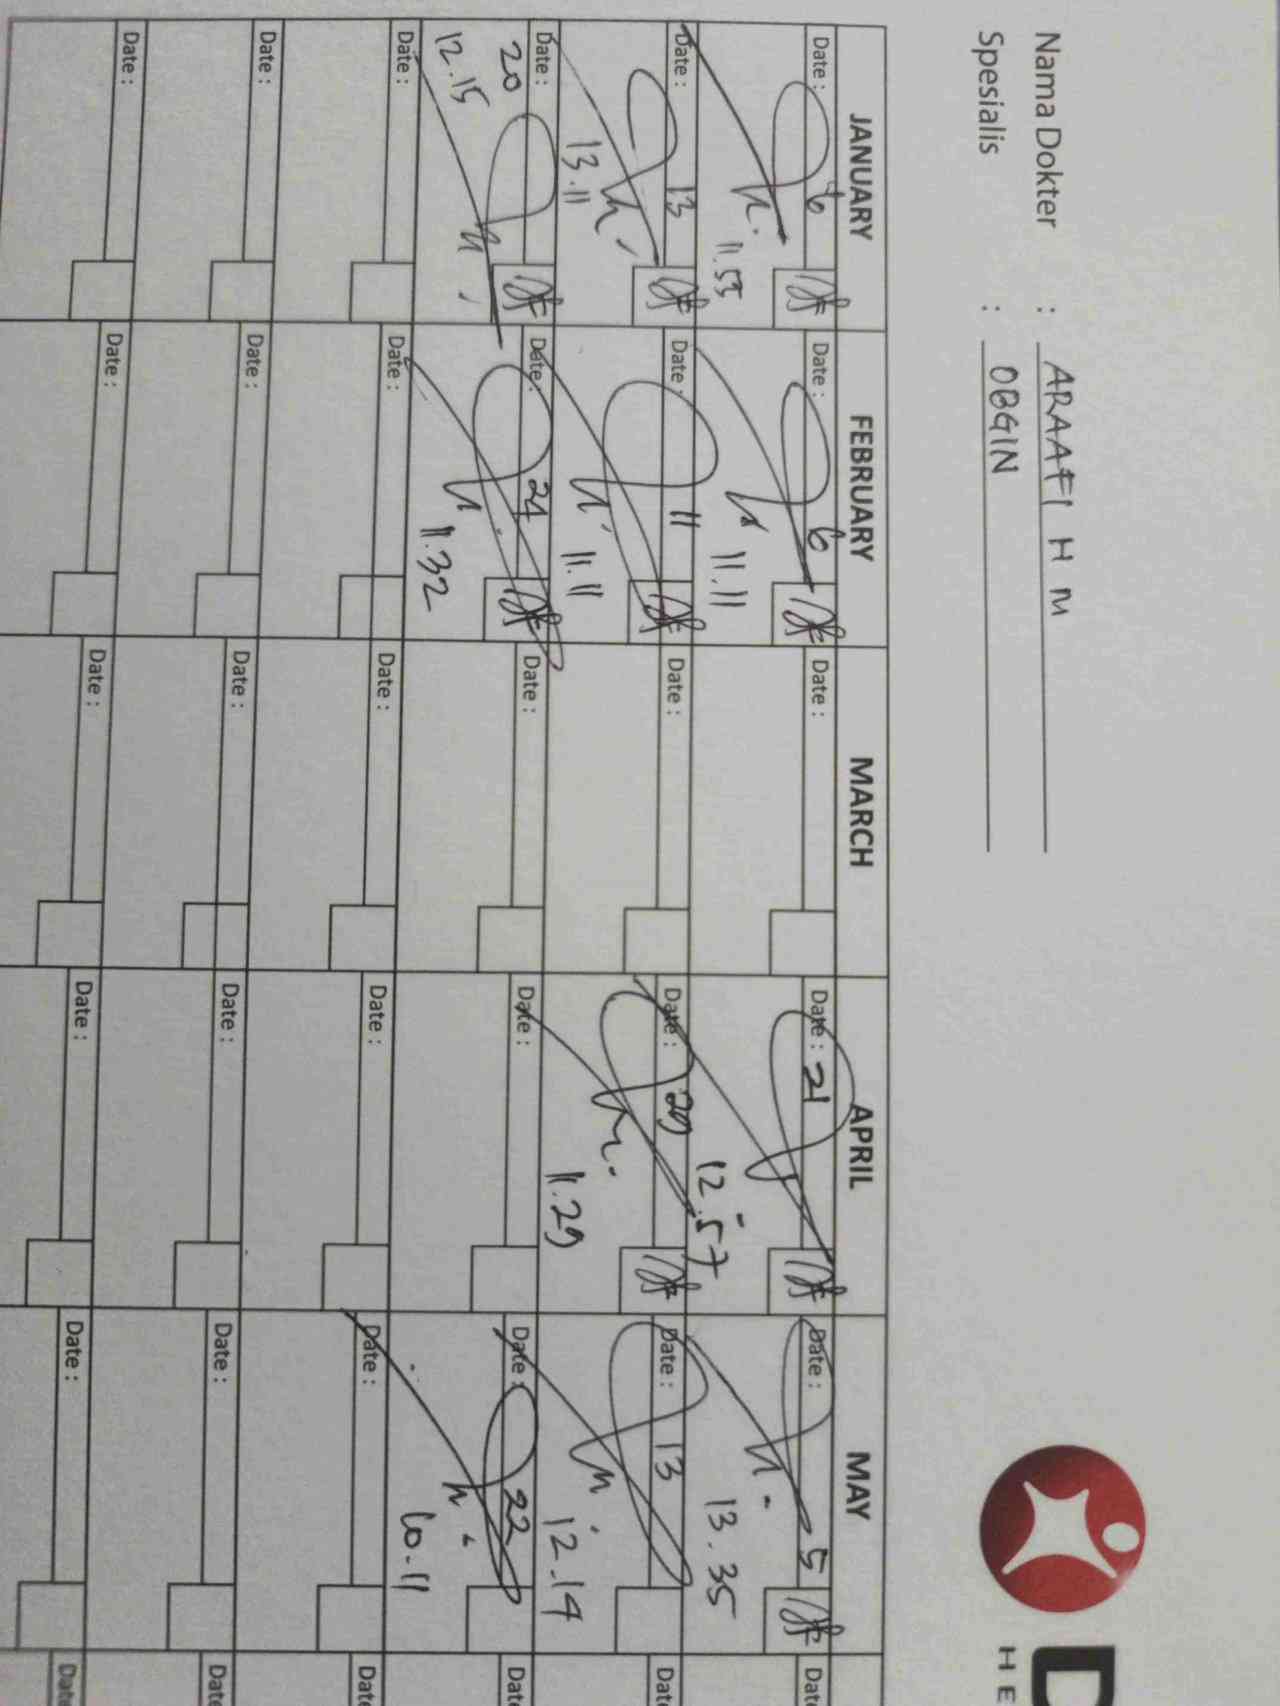 Nama Dokter : ARAAFI H M
Spesialis : OBGIN
D
HE
JANUARY FEBRUARY MARCH APRIL MAY
Date : 6 Date : 6 Date : Date : 21 Date : 5 Date
11.53 11.11 12.57 13.35
Date : 13 Date : 11 Date : Date : 29 Date : 13 Date
13.11 11.11 11.29 12.14
Date : Date : 24 Date : Date : Date : 22 Date
20
12.15 11.32 10.11
Date : Date : Date : Date : Date : Date
Date : Date : Date : Date : Date : Date
Date : Date : Date : Date : Date : Date